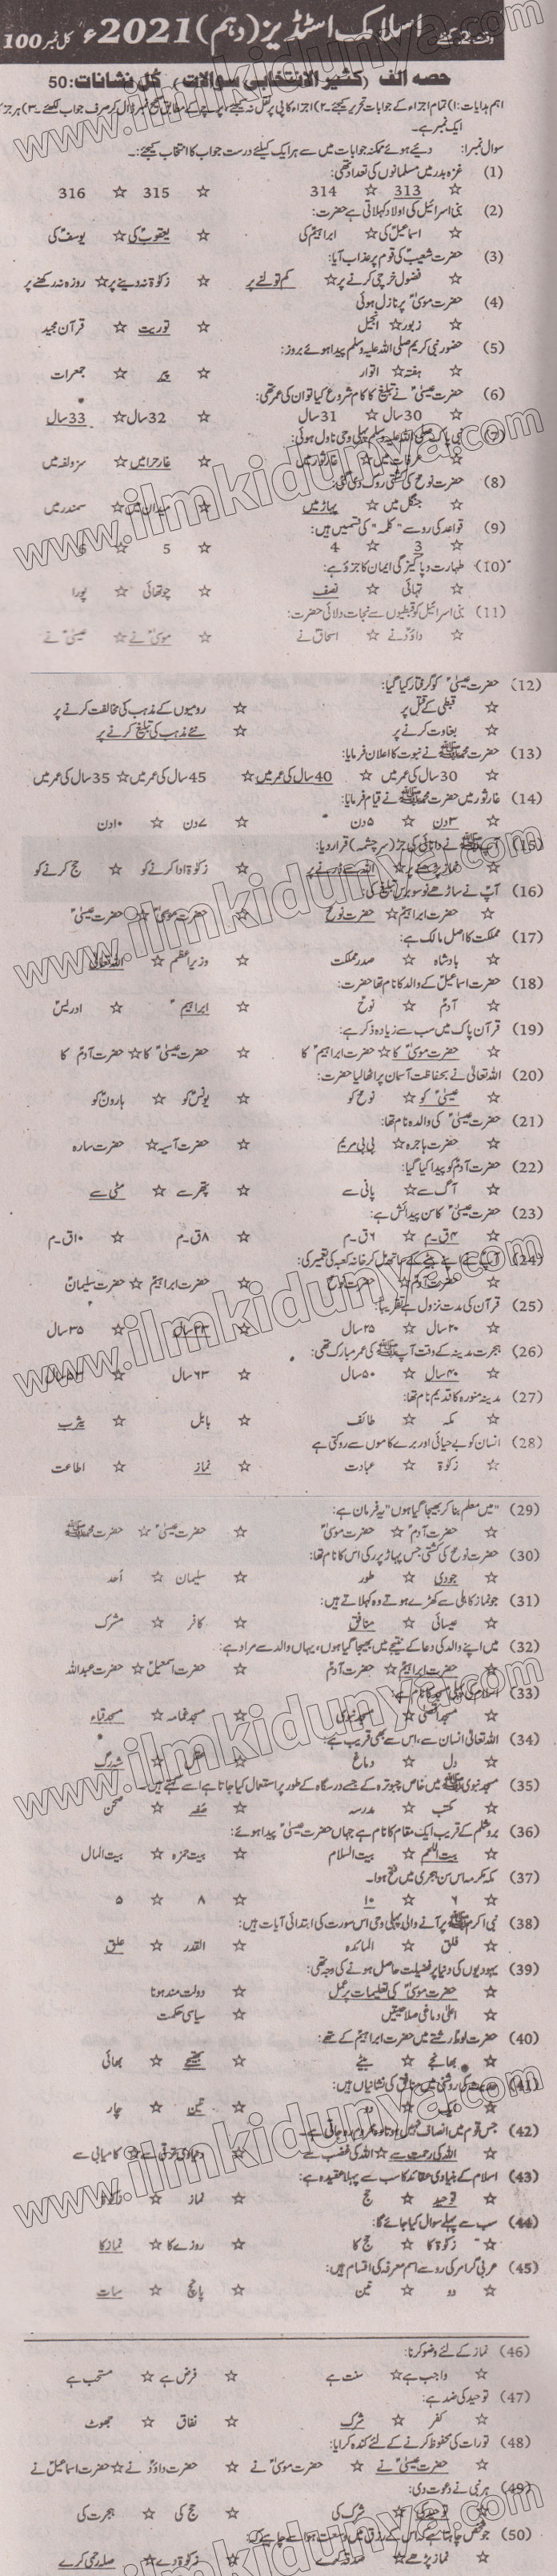 وقت 2 گھنٹے اسلامک اسٹڈیز (دہم) 2021ء کل نمبر 100
حصہ الف (کثیر الانتخابی سوالات) کل نشانات: 50
اہم ہدایات: ۱) تمام اجزاء کے جوابات تحریر کیجئے۔ ۲) اجزاء کاپی پر نقل نہ کیجئے، پرچے کے مطابق صحیح نمبر ڈال کر صرف جواب لکھئے۔ ۳) ہر جز کا
ایک نمبر ہے۔
سوال نمبر ۱: دیئے ہوئے ممکنہ جوابات میں سے ہر ایک کیلئے درست جواب کا انتخاب کیجئے:۔
(1) غزہ بدر میں مسلمانوں کی تعداد تھی:
☆ 313 ☆ 314 ☆ 315 ☆ 316
(2) بنی اسرائیل کی اولاد کہلاتی ہے حضرت:
☆ اسماعیلؑ کی ☆ ابراہیمؑ کی ☆ یعقوبؑ کی ☆ یوسفؑ کی
(3) حضرت شعیبؑ کی قوم پر عذاب آیا:
☆ فضول خرچی کرنے پر ☆ کم تولنے پر ☆ زکوٰۃ نہ دینے پر ☆ روزہ نہ رکھنے پر
(4) حضرت موسیٰؑ پر نازل ہوئی
☆ زبور ☆ انجیل ☆ توریت ☆ قرآن مجید
(5) حضور نبی کریم صلی اللہ علیہ وسلم پیدا ہوئے بروز:
☆ ہفتہ ☆ اتوار ☆ پیر ☆ جمعرات
(6) حضرت عیسیٰؑ نے تبلیغ کا کام شروع کیا تو ان کی عمر تھی:
☆ 30 سال ☆ 31 سال ☆ 32 سال ☆ 33 سال
(7) نبی پاک صلی اللہ علیہ وسلم پہلی وحی نازل ہوئی:
☆ عرفات میں ☆ غار ثور میں ☆ غار حرا میں ☆ مزدلفہ میں
(8) حضرت نوحؑ کی کشتی روک دی گئی:
☆ جنگل میں ☆ پہاڑ میں ☆ میدان میں ☆ سمندر میں
(9) قواعد کی رو سے "کلمہ" کی قسمیں ہیں:
☆ 3 ☆ 4 ☆ 5 ☆ 6
(10) طہارت و پاکیزگی ایمان کا جزو ہے:
☆ تہائی ☆ نصف ☆ چوتھائی ☆ پورا
(11) بنی اسرائیل کو قبطیوں سے نجات دلائی حضرت:
☆ داؤدؑ نے ☆ اسحاقؑ نے ☆ موسیٰؑ نے ☆ عیسیٰؑ نے
(12) حضرت عیسیٰؑ کو گرفتار کیا گیا:
☆ قبطی کے قتل پر ☆ رومیوں کے مذہب کی مخالفت کرنے پر
☆ بغاوت کرنے پر ☆ نئے مذہب کی تبلیغ کرنے پر
(13) حضرت محمد ﷺ نے نبوت کا اعلان فرمایا:
☆ 30 سال کی عمر میں ☆ 40 سال کی عمر میں ☆ 45 سال کی عمر میں ☆ 35 سال کی عمر میں
(14) غار ثور میں حضرت محمد ﷺ نے قیام فرمایا:
☆ ۳ دن ☆ ۵ دن ☆ ۷ دن ☆ ۱۰ دن
(15) آپ ﷺ نے دانائی کی جڑ (سرچشمہ) قرار دیا:
☆ نماز پڑھنے پر ☆ اللہ سے ڈرنے پر ☆ زکوٰۃ ادا کرنے کو ☆ حج کرنے کو
(16) آپؑ نے ساڑھے نو سو برس تبلیغ کی:
☆ حضرت ابراہیمؑ ☆ حضرت نوحؑ ☆ حضرت موسیٰؑ ☆ حضرت عیسیٰؑ
(17) مملکت کا اصل مالک ہے:
☆ بادشاہ ☆ صدر مملکت ☆ وزیراعظم ☆ اللہ تعالیٰ
(18) حضرت اسماعیلؑ کے والد کا نام تھا حضرت:
☆ آدمؑ ☆ نوحؑ ☆ ابراہیمؑ ☆ ادریسؑ
(19) قرآن پاک میں سب سے زیادہ ذکر ہے:
☆ حضرت موسیٰؑ کا ☆ حضرت ابراہیمؑ کا ☆ حضرت عیسیٰؑ کا ☆ حضرت آدمؑ کا
(20) اللہ تعالیٰ نے بحفاظت آسمان پر اٹھا لیا حضرت:
☆ عیسیٰؑ کو ☆ نوحؑ کو ☆ یونسؑ کو ☆ ہارونؑ کو
(21) حضرت عیسیٰؑ کی والدہ نام تھا:
☆ حضرت ہاجرہ ☆ بی بی مریم ☆ حضرت آسیہ ☆ حضرت سارہ
(22) حضرت آدمؑ کو پیدا کیا گیا:
☆ آگ سے ☆ پانی سے ☆ پتھر سے ☆ مٹی سے
(23) حضرت عیسیٰؑ کا سن پیدائش ہے:
☆ ۴ ق۔م ☆ ۶ ق۔م ☆ ۸ ق۔م ☆ ۱۰ ق۔م
(24) آپؑ نے اپنے بیٹے کے ساتھ مل کر خانہ کعبہ کی تعمیر کی:
☆ حضرت آدمؑ ☆ حضرت نوحؑ ☆ حضرت ابراہیمؑ ☆ حضرت سلیمانؑ
(25) قرآن کی مدت نزول ہے تقریباً:
☆ ۲۰ سال ☆ ۲۵ سال ☆ ۲۳ سال ☆ ۳۵ سال
(26) ہجرت مدینہ کے وقت آپ ﷺ کی عمر مبارک تھی:
☆ ۴۰ سال ☆ ۵۰ سال ☆ ۶۳ سال ☆ ۵۳ سال
(27) مدینہ منورہ کا قدیم نام تھا:
☆ مکہ ☆ طائف ☆ بابل ☆ یثرب
(28) انسان کو بے حیائی اور برے کاموں سے روکتی ہے
☆ زکوٰۃ ☆ عبادت ☆ نماز ☆ اطاعت
(29) "میں معلم بنا کر بھیجا گیا ہوں" یہ فرمان ہے:
☆ حضرت آدمؑ ☆ حضرت موسیٰؑ ☆ حضرت عیسیٰؑ ☆ حضرت محمد ﷺ
(30) حضرت نوحؑ کی کشتی جس پہاڑ پر رکی اس کا نام تھا:
☆ جودی ☆ طور ☆ سلیمان ☆ اُحد
(31) جو نماز کاہلی سے کھڑے ہوتے وہ کہلاتے ہیں:
☆ عیسائی ☆ منافق ☆ کافر ☆ مشرک
(32) میں اپنے والد کی دعا کے نتیجے میں بھیجا گیا ہوں، یہاں والد سے مراد ہے:
☆ حضرت ابراہیمؑ ☆ حضرت آدمؑ ☆ حضرت اسمعیلؑ ☆ حضرت عبداللہ
(33) اسلام کی پہلی مسجد کا نام ہے:
☆ مسجد اقصیٰ ☆ مسجد نبوی ☆ مسجد غمامہ ☆ مسجد قباء
(34) اللہ تعالیٰ انسان سے، اس سے بھی قریب ہے:
☆ دل ☆ دماغ ☆ عقل ☆ شہ رگ
(35) مسجد نبوی ﷺ میں خاص چبوترہ کے جسے درسگاہ کے طور پر استعمال کیا جاتا ہے اسے کہتے ہیں۔
☆ مکتب ☆ مدرسہ ☆ صُفہ ☆ صحن
(36) یروشلم کے قریب ایک مقام کا نام ہے جہاں حضرت عیسیٰؑ پیدا ہوئے:
☆ بیت اللحم ☆ بیت السلام ☆ بیت حمزہ ☆ بیت المال
(37) مکہ مکرمہ اس سن ہجری میں فتح ہوا۔
☆ ۶ ☆ ۱۰ ☆ ۸ ☆ ۵
(38) نبی اکرم ﷺ پر آنے والی پہلی وحی اس سورت کی ابتدائی آیات ہیں:
☆ فلق ☆ المائدہ ☆ القدر ☆ علق
(39) یہودیوں کی دنیا پر فضیلت حاصل ہونے کی وجہ تھی:
☆ حضرت موسیٰؑ کی تعلیمات پر عمل ☆ دولت مند ہونا
☆ اعلیٰ دماغی صلاحیتیں ☆ سیاسی حکمت
(40) حضرت لوطؑ رشتے میں حضرت ابراہیمؑ کے تھے:
☆ بھانجے ☆ بیٹے ☆ بھتیجے ☆ بھائی
(41) حدیث کی روشنی میں منافق کی نشانیاں ہیں:
☆ ایک ☆ دو ☆ تین ☆ چار
(42) جس قوم میں انصاف نہیں ہوتا وہ محروم رہ جاتی ہے۔
☆ اللہ کی رحمت سے ☆ اللہ کی غضب سے ☆ دنیاوی ترقی سے ☆ کامیابی سے
(43) اسلام کے بنیادی عقائد کا سب سے پہلا عقیدہ ہے:
☆ توحید ☆ حج ☆ نماز ☆ زکوٰۃ
(44) سب سے پہلے سوال کیا جائے گا:
☆ زکوٰۃ کا ☆ حج کا ☆ روزے کا ☆ نماز کا
(45) عربی گرامر کی رو سے اسم معرفہ کی اقسام ہیں:
☆ دو ☆ تین ☆ پانچ ☆ سات
(46) نماز کے لئے وضو کرنا:
☆ واجب ہے ☆ سنت ہے ☆ فرض ہے ☆ مستحب ہے
(47) توحید کی ضد ہے:
☆ کفر ☆ شرک ☆ نفاق ☆ جھوٹ
(48) تورات کی محفوظ کرنے کے لئے کندہ کرایا:
☆ حضرت عیسیٰؑ نے ☆ حضرت موسیٰؑ نے ☆ حضرت داؤدؑ نے ☆ حضرت اسماعیلؑ نے
(49) ہر نبی نے دعوت دی:
☆ توحید کی ☆ شرک کی ☆ حج کی ☆ ہجرت کی
(50) جو شخص چاہتا ہے کہ اس کے رزق میں وسعت ہو اسے چاہیے کہ:
☆ نماز پڑھے ☆ صدقہ کرے ☆ زکوٰۃ دے ☆ صلہ رحمی کرے
www.ilmkidunya.com
www.ilmkidunya.com
www.ilmkidunya.com
www.ilmkidunya.com
www.ilmkidunya.com
www.ilmkidunya.com